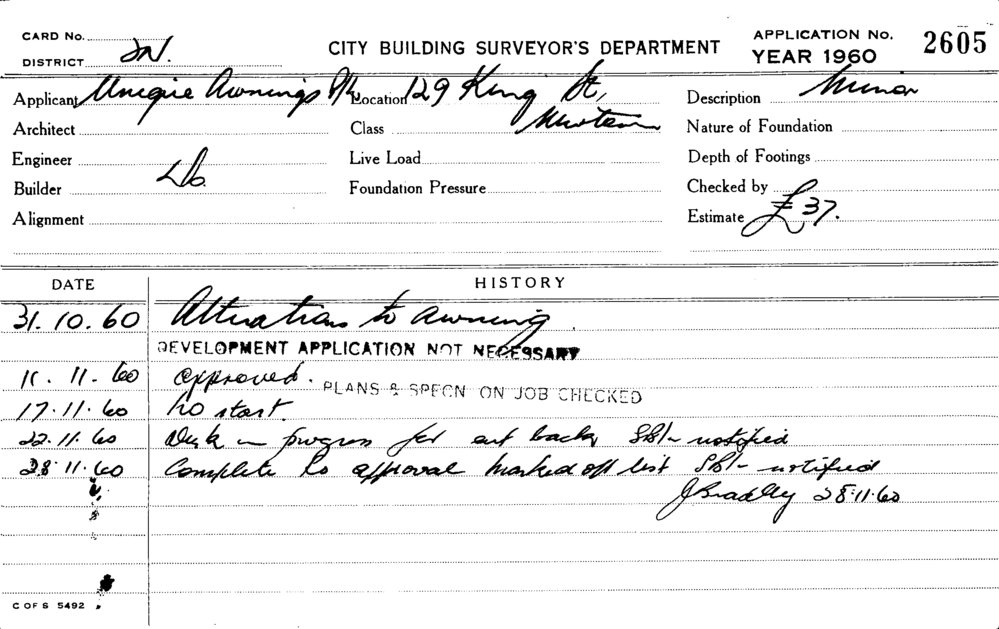 CARD No.
DISTRICT
CITY BUILDING SURVEYOR'S DEPARTMENT
APPLICATION No. 2605
YEAR 1960
Applicant Unique Awnings P/L Location 129 King St, Description Minor
Architect Class Newtown Nature of Foundation
Engineer Live Load Depth of Footings
Builder Do. Foundation Pressure Checked by
Alignment Estimate £37.
DATE HISTORY
31.10.60 Alterations to awning.
DEVELOPMENT APPLICATION NOT NECESSARY
11.11.60 approved.
PLANS & SPECN ON JOB CHECKED
17.11.60 no start.
22.11.60 Work in progress for cut back, notified
28.11.60 Complete to approval marked off list notified
J Bradley 28.11.60
C OF S 5492